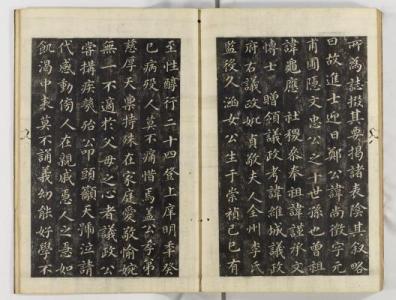 所爲誌掇其要揭諸表陰其叙略
曰故進士迎日鄭公諱尚徵字元
甫圃隱文忠公之十世孫也曾祖
諱龜應 社稷參奉祖諱謹承文
博士 贈領議政考諱維城議政
府右議政妣貞敬夫人全州李氏
監役久涵女公生于崇禎己巳有
至性醇行二十四登上庠明年癸
巳病歿人莫不痛惜焉盖公孝弟
慈厚天禀特殊在家庭愛敬愉婉
無一不適於父母之心者議政公
嘗搆疾幾殆公叩頭籲天號泣請
代感動傍人在親戚急人之急如
飢渴中表莫不誦義幼能好學不